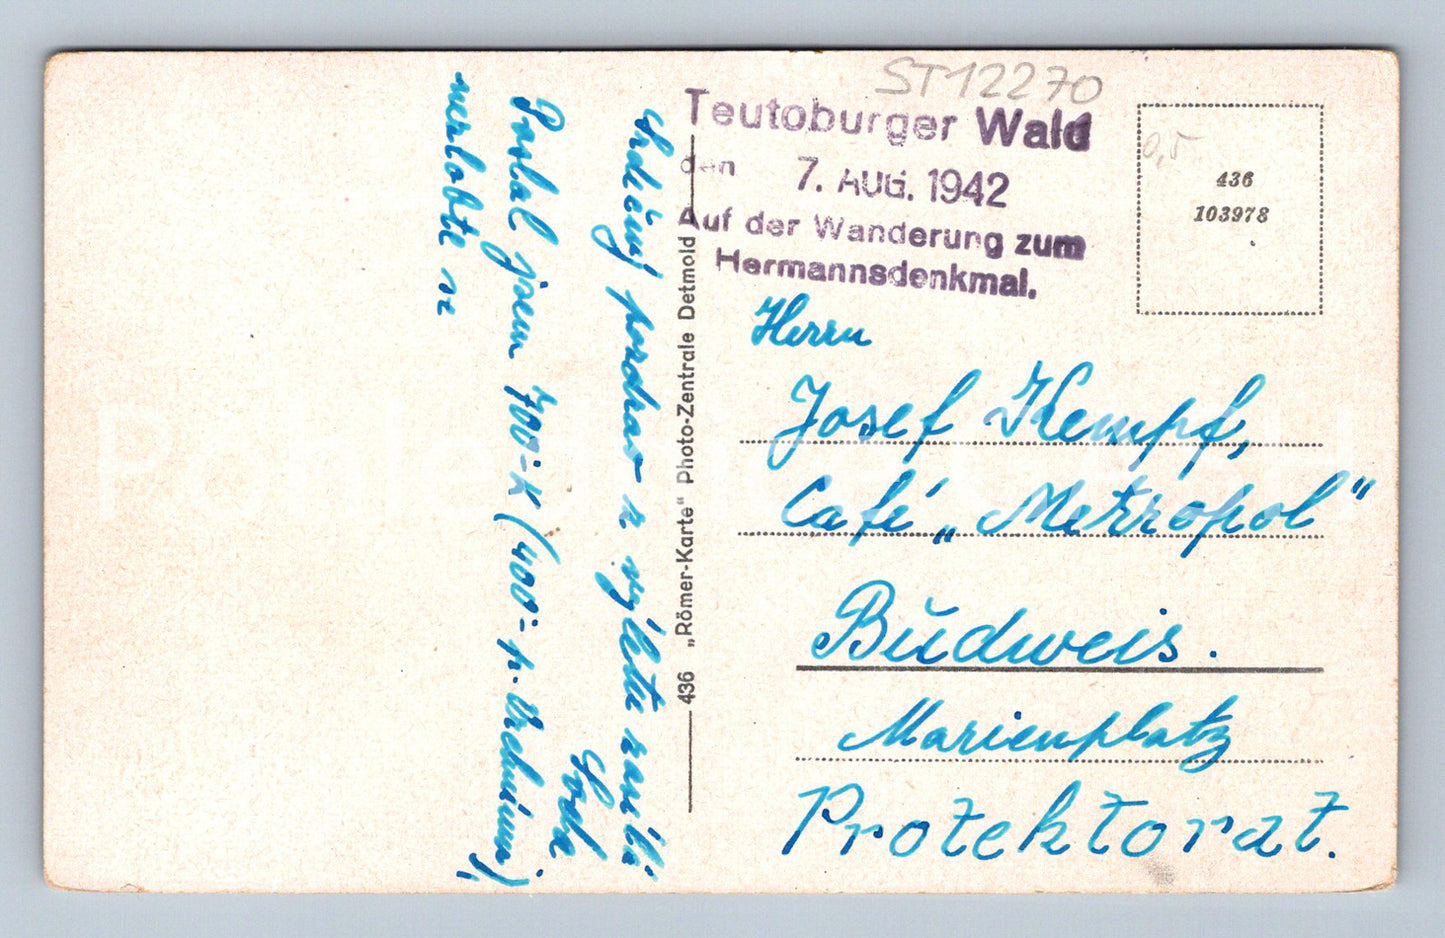 ST12270
Teutoburger Wald
den 7. AUG. 1942
Auf der Wanderung zum
Hermannsdenkmal.
0,5
436
103978
Herrn
Josef Kempf,
Café „Metropol"
Budweis.
Marienplatz
Protektorat.
436 „Römer-Karte" Photo-Zentrale Detmold
Srdečný pozdrav z výletu zasílá
Poslal jsem 700-K (400-p.